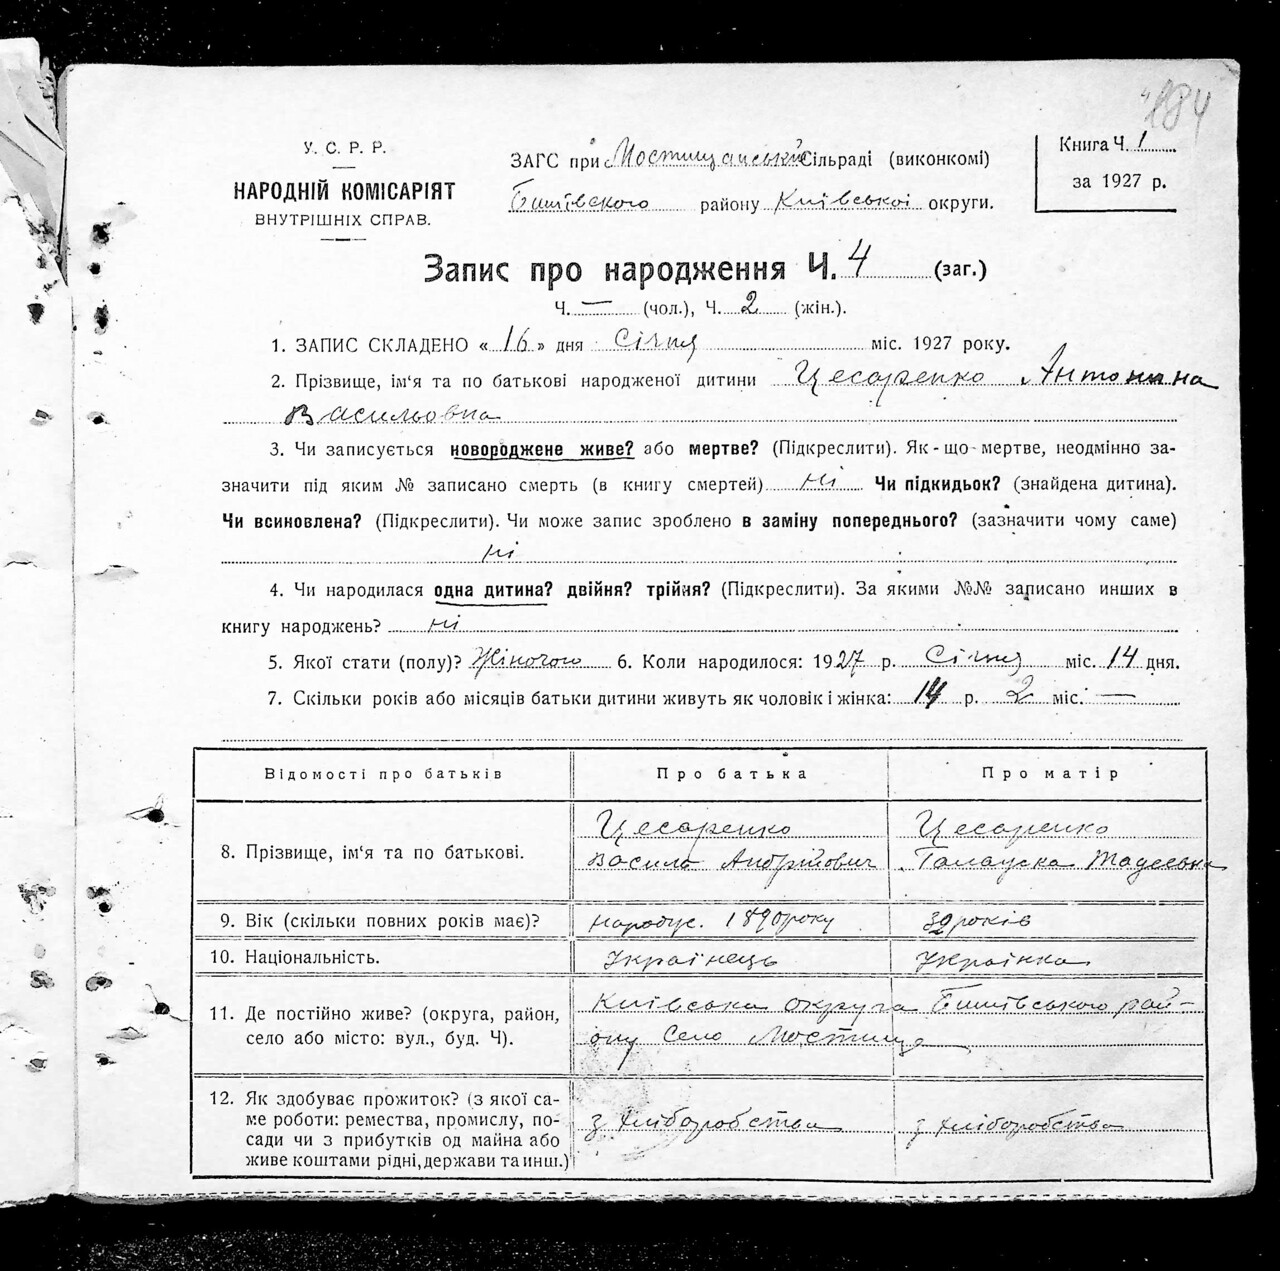 184
У. С. Р. Р.
НАРОДНІЙ КОМІСАРІЯТ
ВНУТРІШНІХ СПРАВ.
ЗАГС при Мостищанській Сільраді (виконкомі)
Бишівского району Київської округи.
Книга Ч. 1
за 1927 р.
Запис про народження Ч. 4 (заг.)
Ч. — (чол.), Ч. 2 (жін.).
1. ЗАПИС СКЛАДЕНО « 16 » дня Січня міс. 1927 року.
2. Прізвище, ім‘я та по батькові народженої дитини Цесаренко Антонина
Васильовна
3. Чи записується новороджене живе? або мертве? (Підкреслити). Як-що мертве, неодмінно за-
значити під яким № записано смерть (в книгу смертей) ні Чи підкидьок? (знайдена дитина).
Чи всиновлена? (Підкреслити). Чи може запис зроблено в заміну попереднього? (зазначити чому саме)
ні
4. Чи народилася одна дитина? двійня? трійня? (Підкреслити). За якими №№ записано инших в
книгу народжень? ні
5. Якої стати (полу)? Жіночого 6. Коли народилося: 1927 р. Січня міс. 14 дня.
7. Скільки років або місяців батьки дитини живуть як чоловік і жінка: 14 р. 2 міс. —
Відомості про батьків Про батька Про матір
8. Прізвище, ім‘я та по батькові.
Цесаренко
Василь Андрійович
Цесаренко
9. Вік (скільки повних років має)? народж. 1890 року років
10. Національність. Українець Українка
11. Де постійно живе? (округа, район,
село або місто: вул., буд. Ч).
Київська округа Бишівського рай-
ону Село Мостище
12. Як здобуває прожиток? (з якої са-
ме роботи: ремества, промислу, по-
сади чи з прибутків од майна або
живе коштами рідні, держави та инш.)
з хліборобства з хліборобства